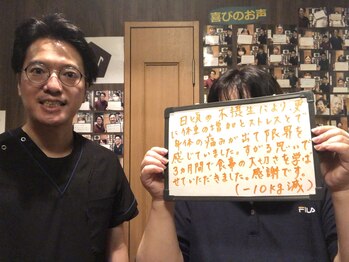 喜びのお声
日頃の不摂生により、更
に体重の増加とストレスとで
身体の痛みが出て限界を
感じていました。すがる思いで
3ヵ月間で食事の大切さを学ば
せていただきました。感謝です。
(-10kg減)
FILA